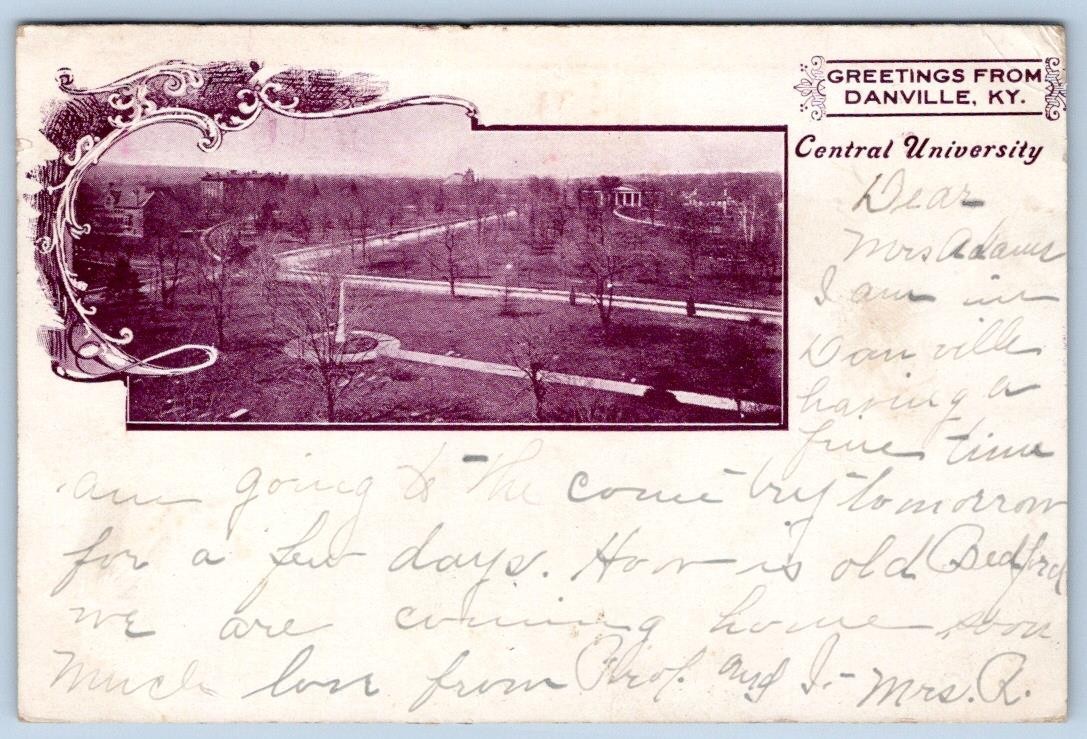 GREETINGS FROM
DANVILLE, KY.
Central University
Dear
Mrs Adams
I am in
Danville
having a
fine time
am going to the country tomorrow
for a few days. How is old Bedford
we are coming home soon
Much love from Prof. and I - Mrs. R.